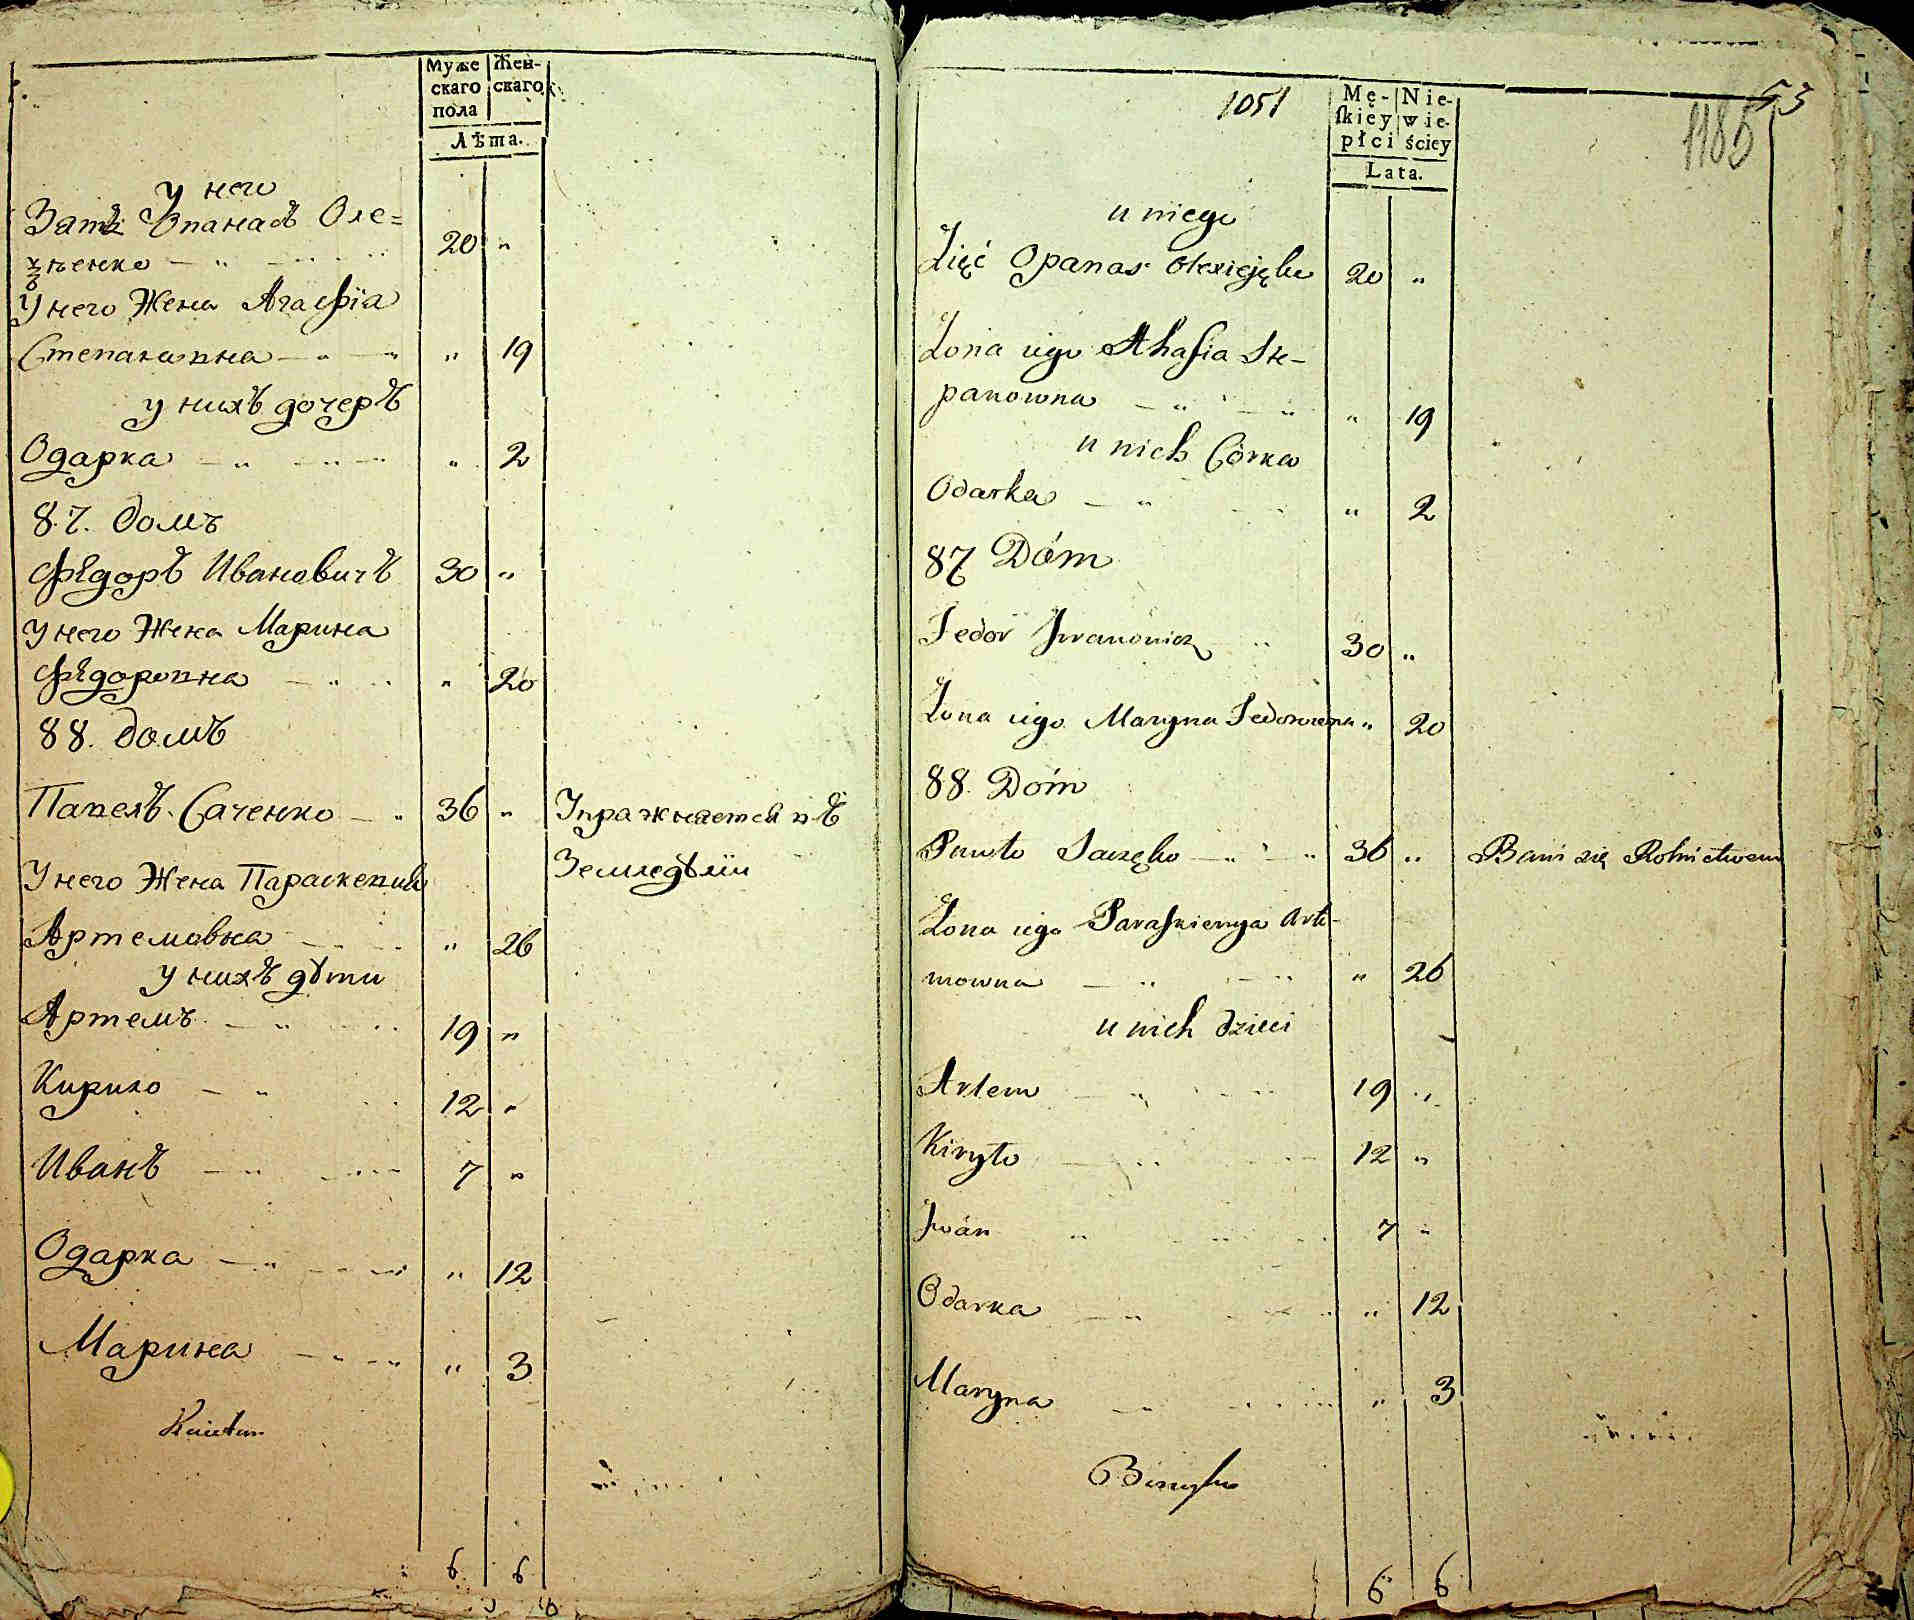 Муже
скаго
пола
Жен-
скаго
Лѣта.
у него
Зять Опанасъ Оле=
20 "
ѣенко
У него Жена Агафія
Степановна " 19
у нихъ дочеръ
Одарка " 2
87. домъ
Федоръ Ивановичъ 30 "
У него Жена Марина
Федоровна " 20
88. домъ
Павелъ Саченко 36 " Упражняется въ
Земледѣліи
У него Жена Параскевия
Артемовна " 26
у нихъ дѣти
Артемъ 19 "
Кирило 12 "
Иванъ 7 "
Одарка " 12
Марина " 3
6 6
53
1051
1185
Mę-
skiey
płci
Nie-
wie-
ściey
Lata.
u niego
Zięć Opanas Olexieięko 20 "
Żona iego Ahafia Ste-
panowna " 19
u nich Córka
Odarka " 2
87 Dóm
Fedor Iwanowicz 30 "
Żona iego Maryna Fedorowna " 20
88. Dóm
Pawło Saczęko 36 " Bawi się Rolnictwem
Żona iego Paraskiewya Arte-
mowna " 26
u nich dzieci
Artem 19 "
Kiryło 12 "
Iwan 7 "
Odarka " 12
Maryna " 3
6 6